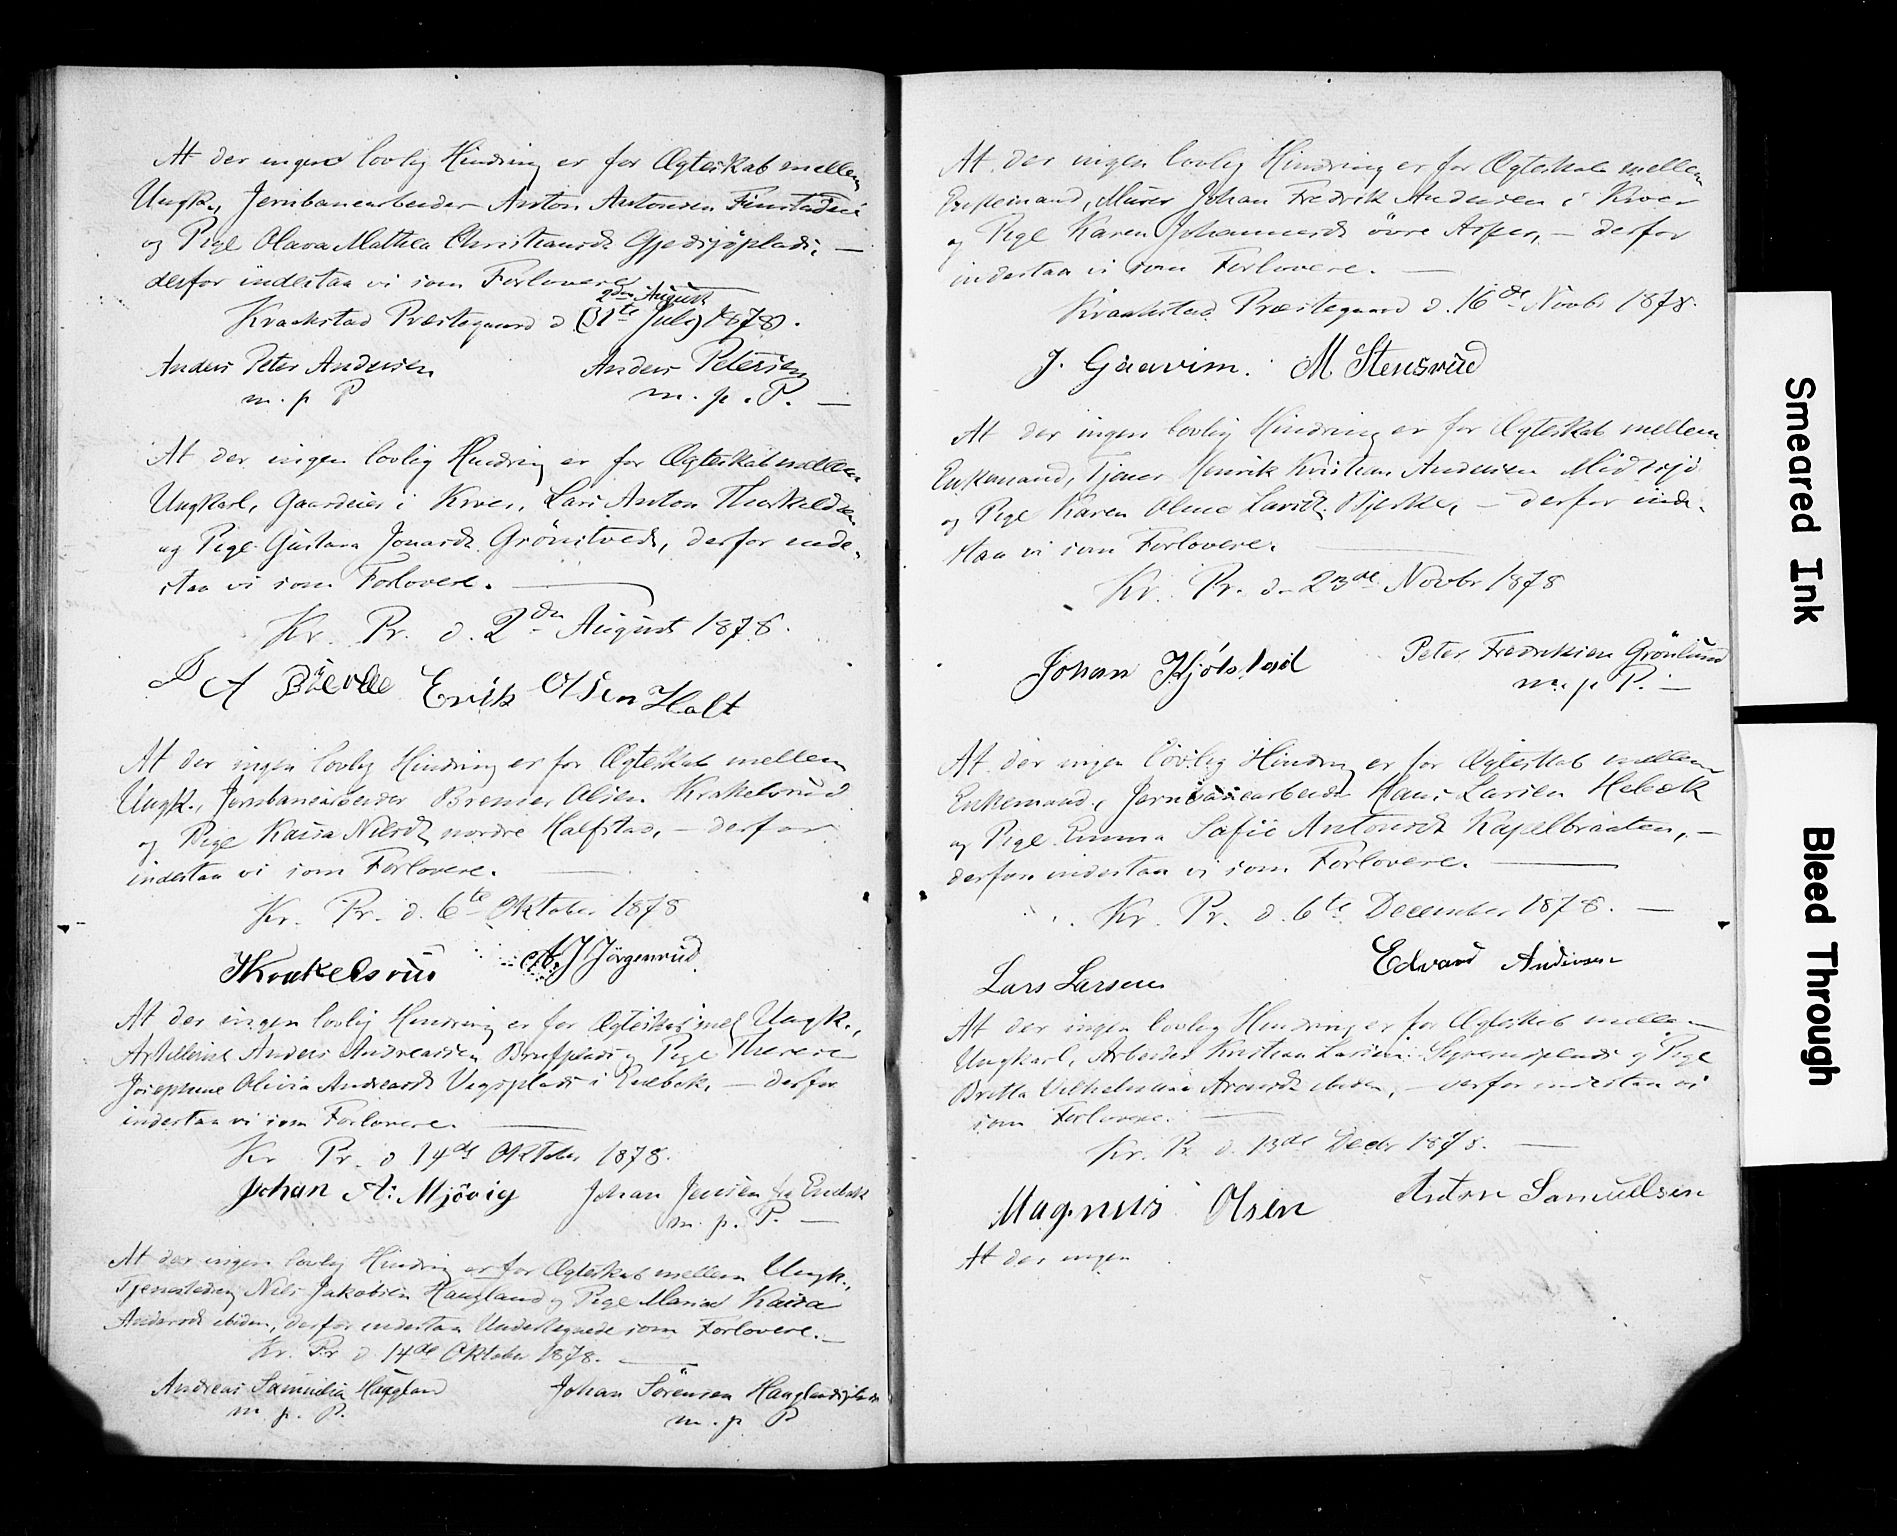 At der ingen lovlig Hindring er for Ægteskab mellem
Ungk., Jernbanearbeider Anton Antonsen
og Pige Olava Mathea Christiansdt.
derfor indestaa vi som Forlovere
2den August
Kraakstad Præstegaard d. (31te July) 1878.
Anders Peter Andersen Anders Petersen
m. p. P. m. p. P. —
At der ingen lovlig Hindring er for Ægteskab mellem
Ungkarl, Gaardeier i Kroer, Lars Anton Thorkeldsen
og Pige Gustava Jonasdt. Grönstvedt, derfor inde-
staa vi som Forlovere. —
Kr. Pr. d. 2den August 1878.
A Erik Olsen Holt
At der ingen lovlig Hindring er for Ægteskab mellem
Ungk., Jernbanearbeider Olsen Krakelsrud
og Pige Kaisa Nilsdt. nordre Halfstad, — derfor
indestaa vi som Forlovere. —
Kr. Pr. d. 6te Oktober 1878
Krakelsrud A. J Jörgensrud
At der ingen lovlig Hindring er for Ægteskab mel. Ungk.,
Artillerist Anders Andreassen og Pige Therese
Josephine Olivia Andreasdt. i Enebak, — derfor
indestaa vi som Forlovere. —
Kr. Pr. d. 14de Oktober 1878.
Johan A. Mjövig Johan Jensen fra Enebak
m. p. P. —
At der ingen lovlig Hindring er for Ægteskab mellem Ungk.,
Nils Jakobsen Haugland og Pige Maria Kaisa
Andersdt. ibiden, derfor indestaa Undertegnede som Forlovere. —
Kr. Pr. d. 14de Oktober 1878. —
Andreas Haugland Johan Sörensen Hauglandsplads
m. p. P. m. p. P
At der ingen lovlig Hindring er for Ægteskab mellem
Enkemand, Murer Johan Fredrik Andersen i Kroer
og Pige Karen Johannesdt. övre Asper, — derfor
indestaa vi som Forlovere. —
Kraakstad Præstegaard d. 16de Novbr 1878.
J. Gaarvim. M Stensrud
At der ingen lovlig Hindring er for Ægteskab mellem
Enkemand, Tjener Henrik Kristian Andersen Midsjö
og Pige Karen Oline Larsdt. Bjerke, — derfor inde-
staa vi som Forlovere. —
Kr. Pr. d. 23de Novbr 1878
Johan Kjölstad Peter Fredriksen Grönlund
m. p. P. —
At der ingen lovlig Hindring er for Ægteskab mellem
Enkemand, Jernbanearbeider Hans Larsen Hebæk
og Pige Emma Safie Antonsdt. Kapelbraaten, —
derfor indestaa vi som Forlovere. —
Kr. Pr. d. 6te December 1878. —
Lars Larsen Edvard Andersen
At der ingen lovlig Hindring er for Ægteskab mellem
Ungkarl, Arbeider Kristian Larsen og Pige
Britta Vilhelmina ibiden, — derfor indestaa vi
som Forlovere. —
Kr. Pr. d. 13de Decbr 1878. —
Magnus Olsen Anton Samuellsen
At der ingen
Smeared Ink
Bleed Through